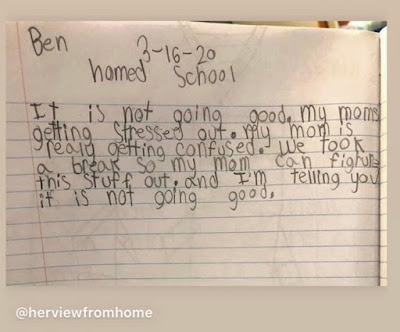 Ben
3-16-20
homed school
It is not going good. my moms
getting stressed out. My mom is
realy getting confused. We took
a break so my mom can fighure
this stuff out. and I'm telling you
it is not going good.
@herviewfromhome